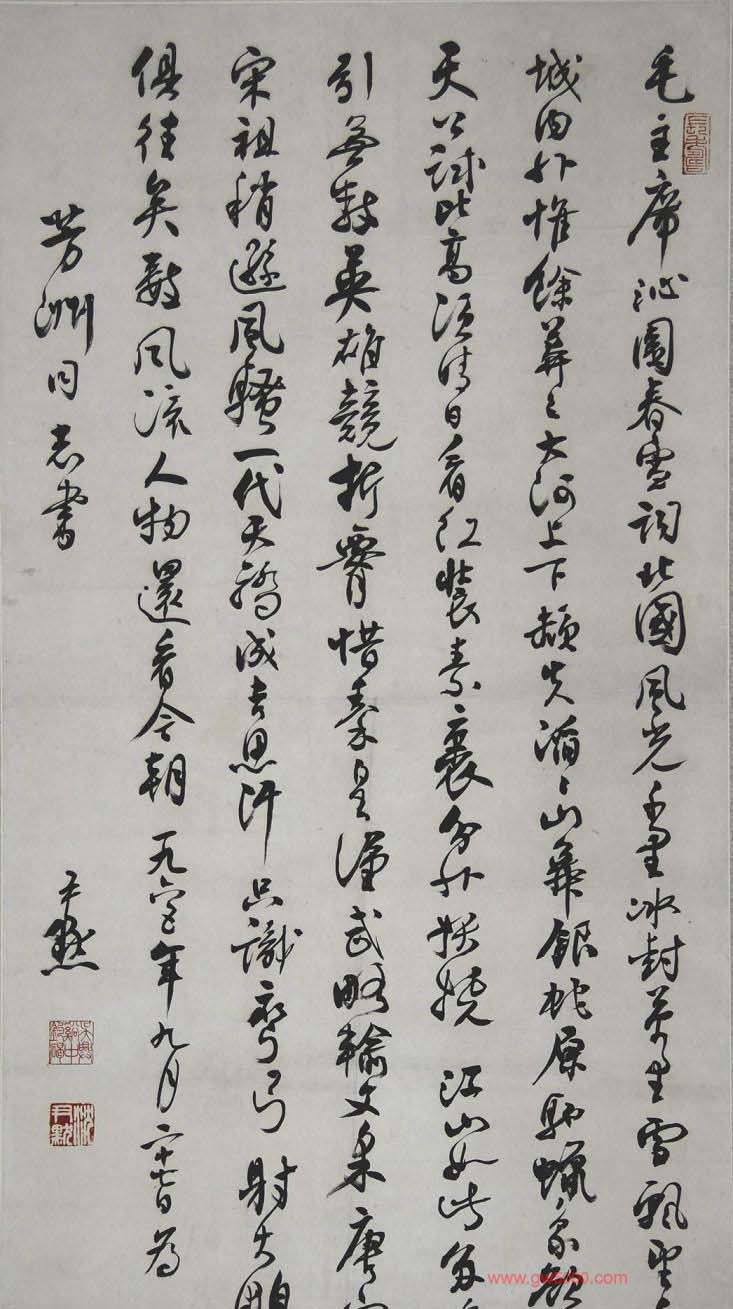 毛主席沁園春雪詞北國風光千里冰封萬里雪飄望
城内外惟餘莽々大河上下頓失滔々山舞銀蛇原馳蠟象欲
天公試比高須晴日看紅裝素裹分外妖嬈 江山如此多
引無數英雄競折腰惜秦皇漢武略輸文采唐宗
宋祖稍遜風騷一代天驕成吉思汗只識彎弓射大鵰
俱往矣數風流人物還看今朝 一九六五年九月二十七日為
芳洲同志書 尹默
沈尹默